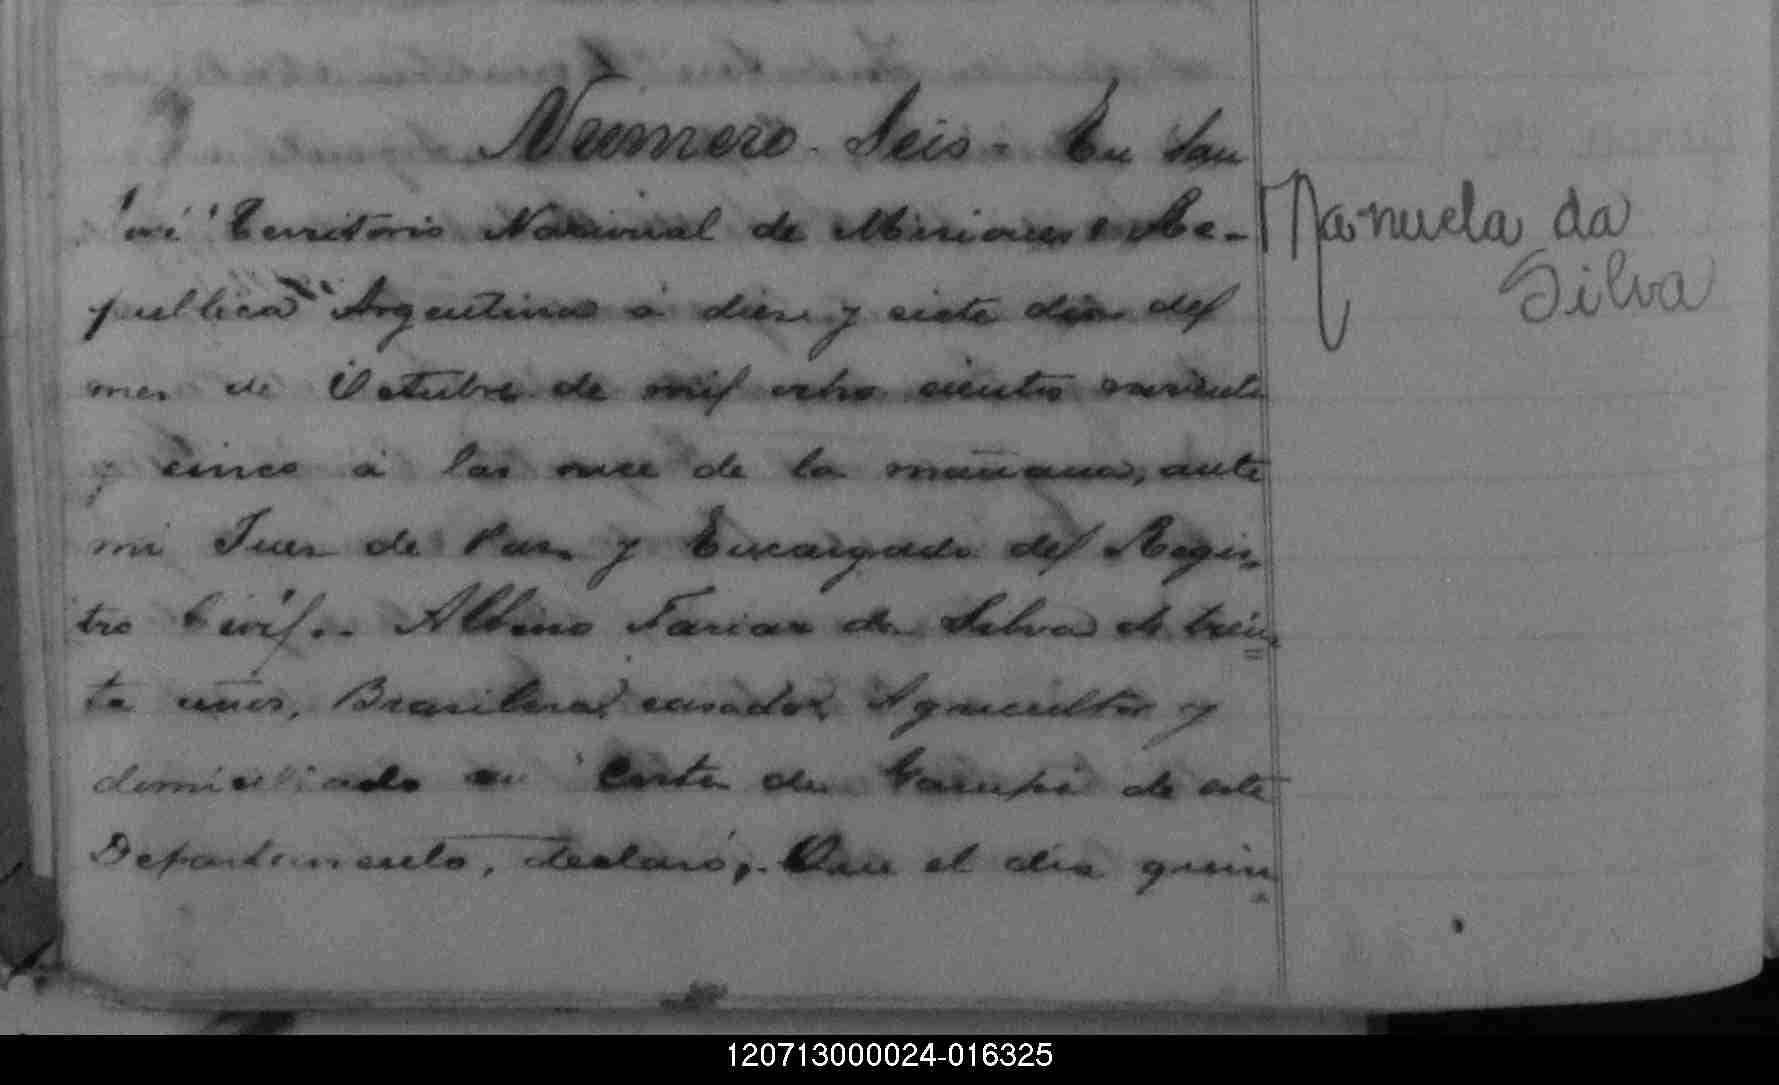 Número Seis. En San
José Territorio Nacional de Misiones Re-
publica Argentina á diez y siete dias del
mes de Octubre de mil ocho cientos noventa
y cinco á las once de la mañana, ante
mi Juez de Paz y Encargado del Regis-
tro Civil. Albino Farias da Silva de trein=
ta años, Brasilero, casado, Agricultor y
domiciliado en Costa de Garupá de este
Departamento, declaró,. Que el dia quin=
Manuela da
Silva
120713000024-016325